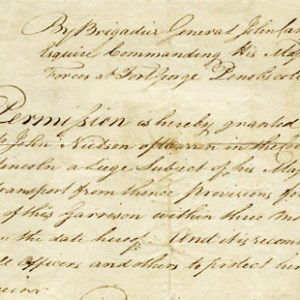 By Brigadier General John Cam
Esquire Commanding His Maj
Forces at Fort George Penobscot
Permission is hereby granted
John Nelson of Warren in the
Lincoln a Liege Subject of his Maj
transport from thence provisions for
of this Garrison within three Mo
the date hereof. And it is recom
officers and others to protect him